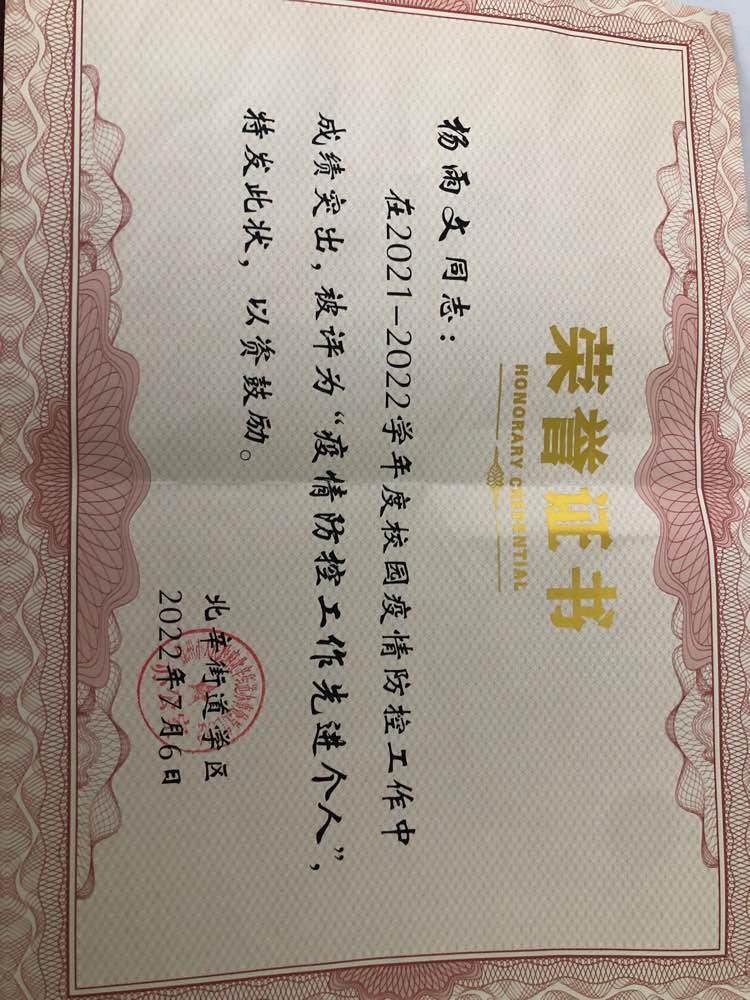 荣誉证书
HONORARY CREDENTIAL
杨雨文同志：
在2021-2022学年度校园疫情防控工作中
成绩突出，被评为“疫情防控工作先进个人”，
特发此状，以资鼓励。
北辛街道学区
2022年7月6日